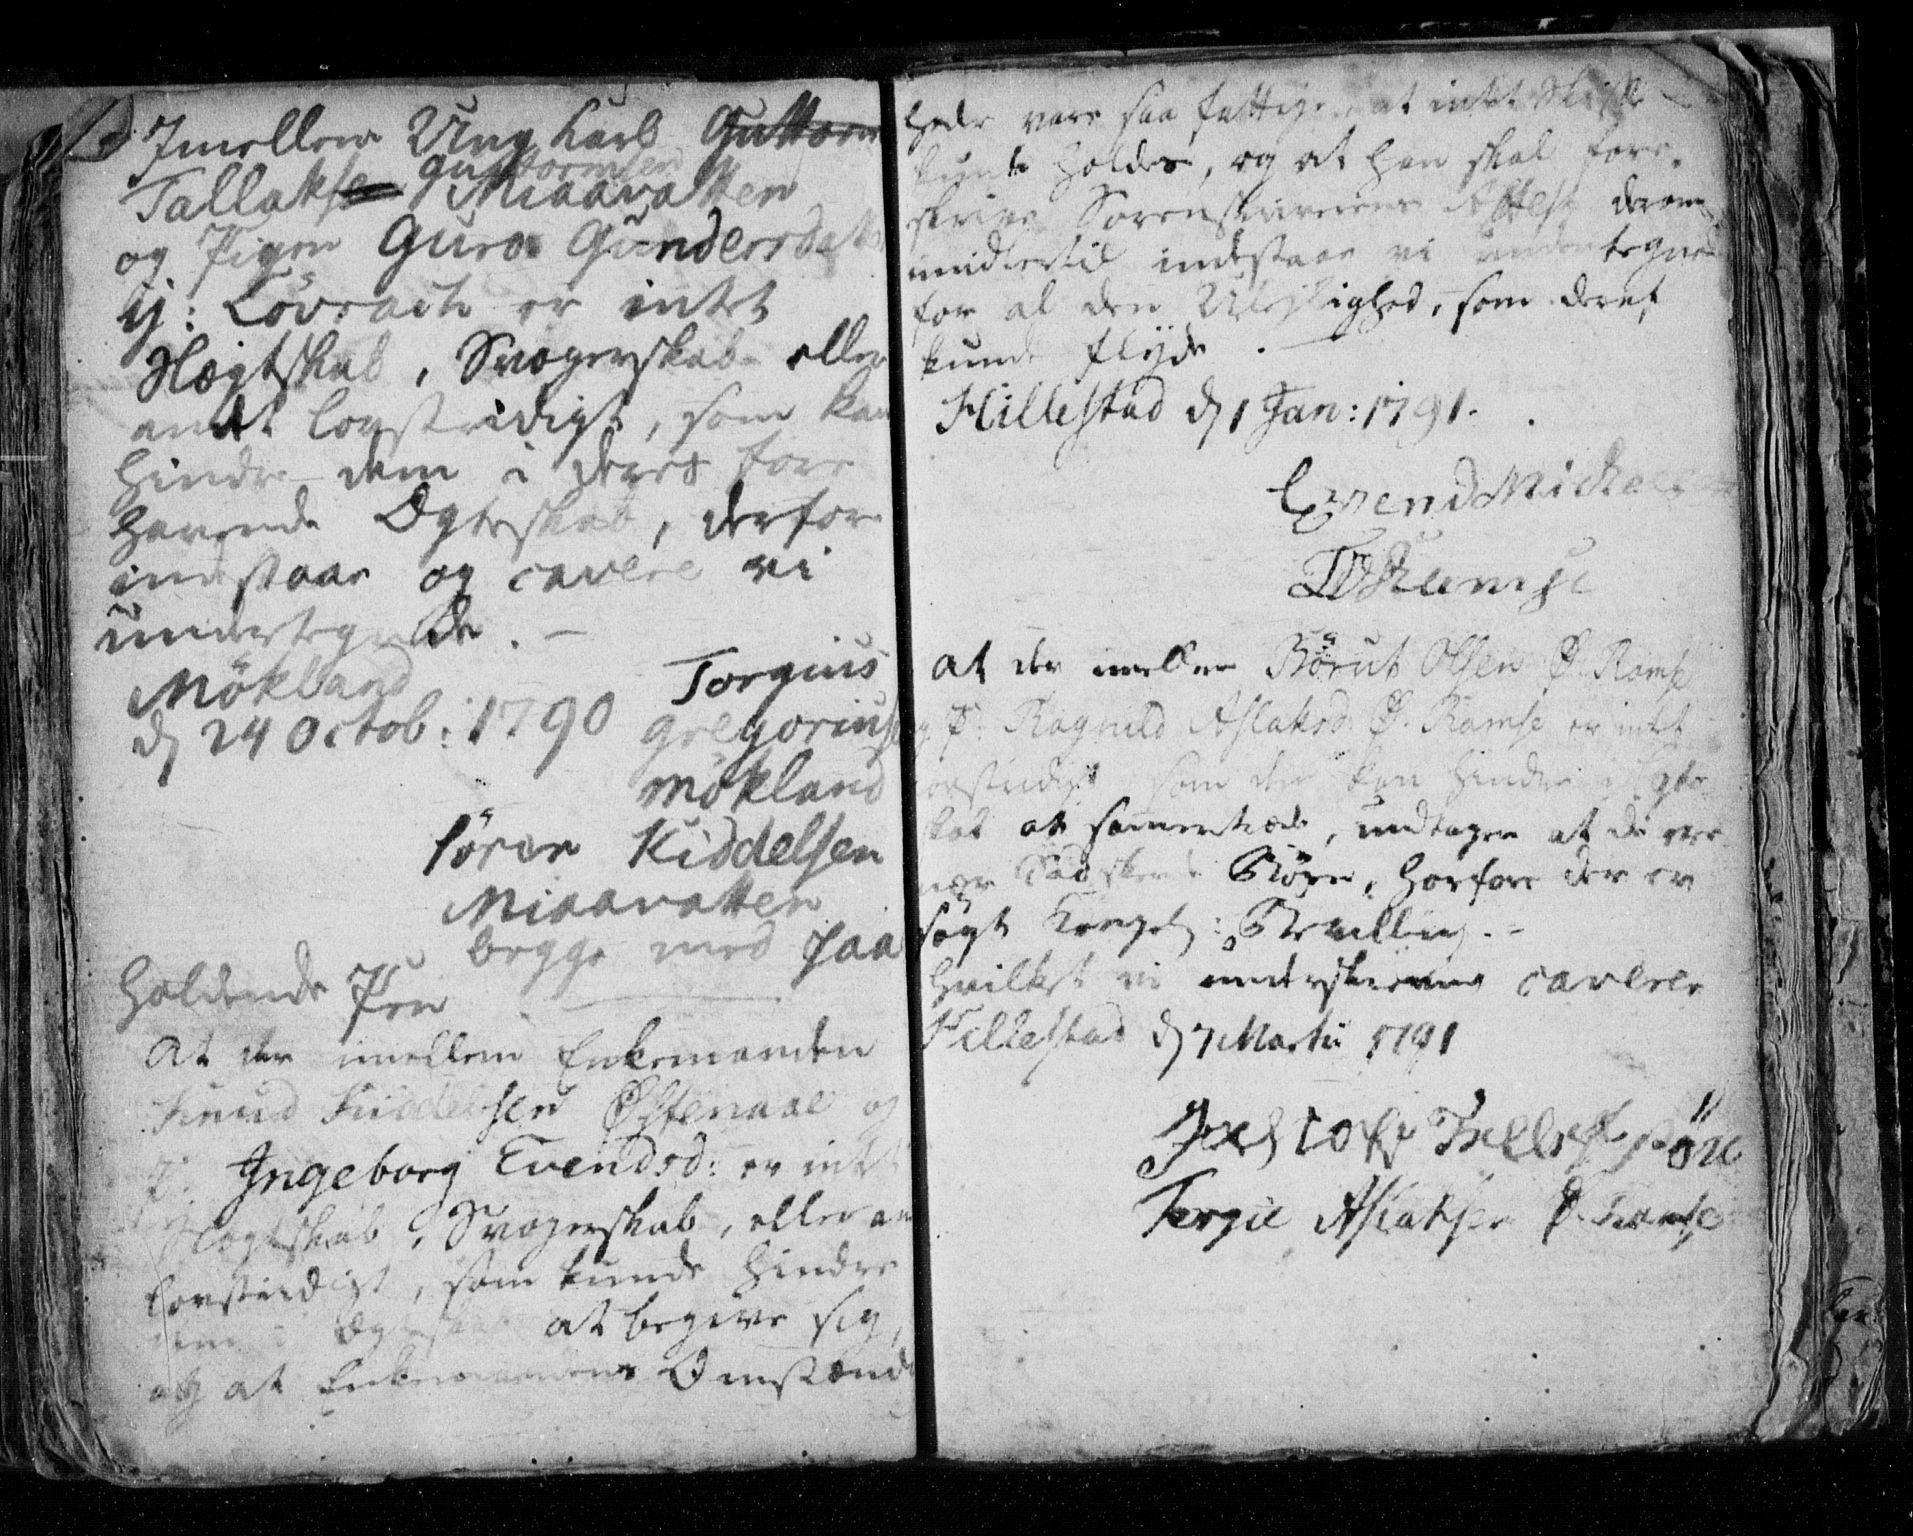 Imellem Ung Karl Guttorm
Guttormsen
Tallakse Miaavatten
og Pigen Guro Gundersdat
ij: Lövraak er intet
Slægtskab, Svogerskab eller
andet lovstridigt, som kan
hindre dem i deres fore
havende Ægteskab, derfor
indstaar og cavere vi
undertegnede. —
Mökland
d 24 Octob: 1790
Torgius
Gregorius
Mökland
Sören Kiddelsen
Miaavatten
begge med paa
holdende Pen
At der imellem Enkemanden
Knud Kiddelsen Østenaae og
P: Ingeborg Evendsd: er intet
Slægtskab, Svogerskab, eller an
lovstridigt, som kunde hindre
dem i Ægteskab at begive sig,
og at Enkemandens Omstænd
heder vare saa fattige, at intet Skifte
kunde holdes, og at han skal fore-
skrive Sorenskriverens Attest derom
imidlertid indestaar vi undertegne
for al den Uleylighed, som deraf
kunde flyde. —
Hillestad d 1 Jan: 1791.
Evend Mickels
Ramse
At der imellem Börut Olsen Ø. Ramse
og P: Ragnild Aslaksd. Ø. Ramse er intet
lovstridigt som dem kan hindre i Ægte
skab at sammentræde, undtagen at de ere
nær Södskende Börn, hvorfore der er
søgt Kongel: Bevilling. -
hvilket vi underskrevne caverer
Hillestad d 7 Martii 1791
Tellefs
Tergie Aslaksen Ø. Ramse